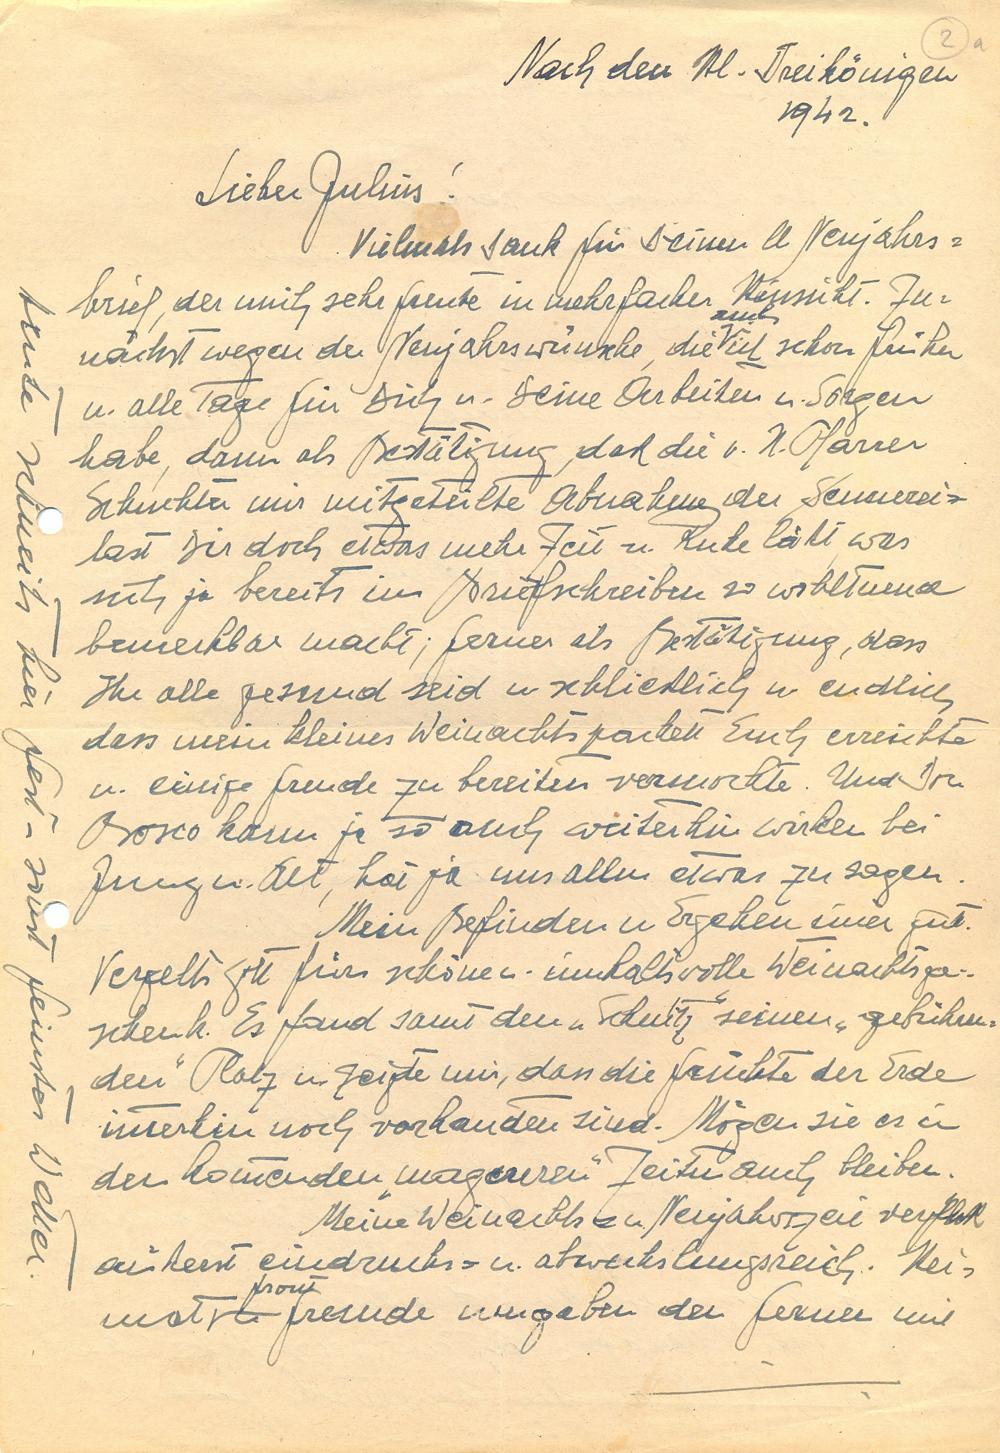 2 a
Nach den Hl. Dreikönigen
1942.
Lieber Julius!
Vielmals Dank für Deinen lb Neujahrs=
brief, der mich sehr freute in mehrfacher Hinsicht. Zu=
nächst wegen der Neujahrswünsche, die auch schon früher
u. alle Tage für Dich u. Deine Arbeiten u. Sorgen
habe, dann als Bestätigung, daß die v. H. Pfarrer
mir mitgeteilte Abnahme der
last Dir doch etwas mehr Zeit u. Ruhe läßt was
sich ja bereits im Briefschreiben so wohltuend
bemerkbar macht; ferner als Bestätigung, dass
Ihr alle gesund seid u schließlich u endlich
dass mein kleines Weinachtspackett Euch erreichte
u. einige Freude zu bereiten vermochte. Und Don
Bosco kann ja so auch weiterhin wirken bei
Jung u. Alt, hat ja uns allen etwas zu sagen.
Mein Befinden u Ergehen gut.
Vergelts Gott fürs schöne u. innhaltsvolle Weinachtsge-
schenk. Es fand samt den „Schnitz" seinen „gebühren=
den" Platz u. zeigte mir, dass die Früchte der Erde
imerhin noch vorhanden sind. Mögen sie es in
den komenden „magereren" Zeiten auch bleiben.
Meine Weinachts u Neujahrszeit verfloß
äußerst eindrucks= u. abwechslungsreich. Hei=
mat u front freunde umgaben den fernen mit
heute schneits hier fest - sonst feinstes Wetter.